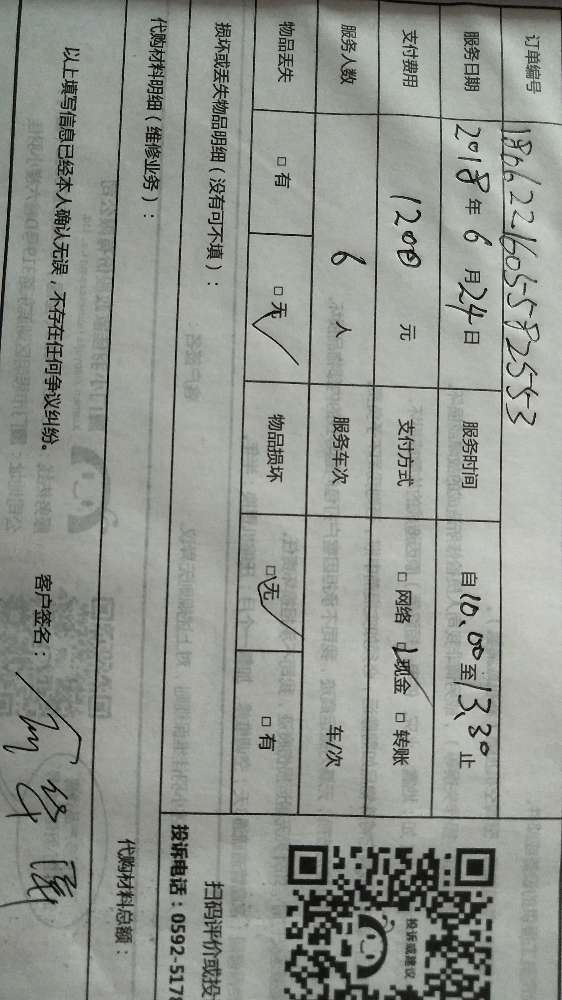 订单编号 18662216055825553
服务日期 2018年6月24日 服务时间 自10.00至13.30止
支付费用 1200元 支付方式 □网络 ☑现金 □转账
服务人数 6人 服务车次 车/次
物品丢失 □有 ☑无 物品损坏 ☑无 □有
损坏或丢失物品明细（没有可不填）：
代购材料明细（维修业务）：
代购材料总额：
以上填写信息已经本人确认无误，不存在任何争议纠纷。 客户签名：
投诉或建议
扫码评价或投
投诉电话：0592-5178